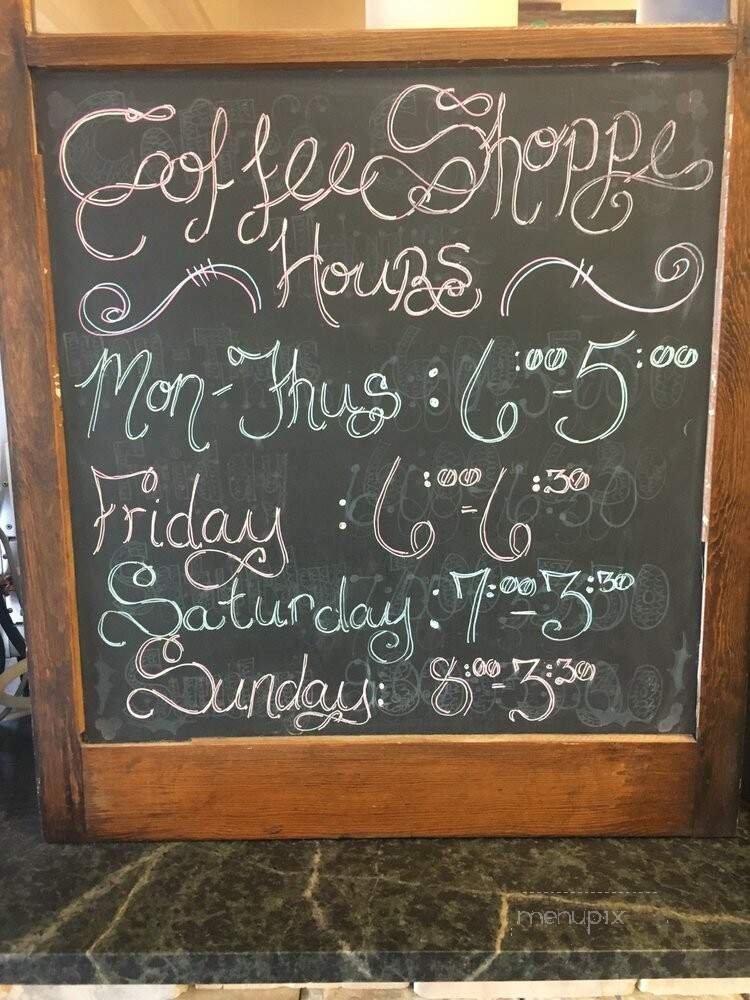 Coffee Shoppe
Hours
Mon-Thus : 6:00-5:00
Friday : 6:00-6:30
Saturday : 7:00-3:30
Sunday : 8:00-3:30
menupix